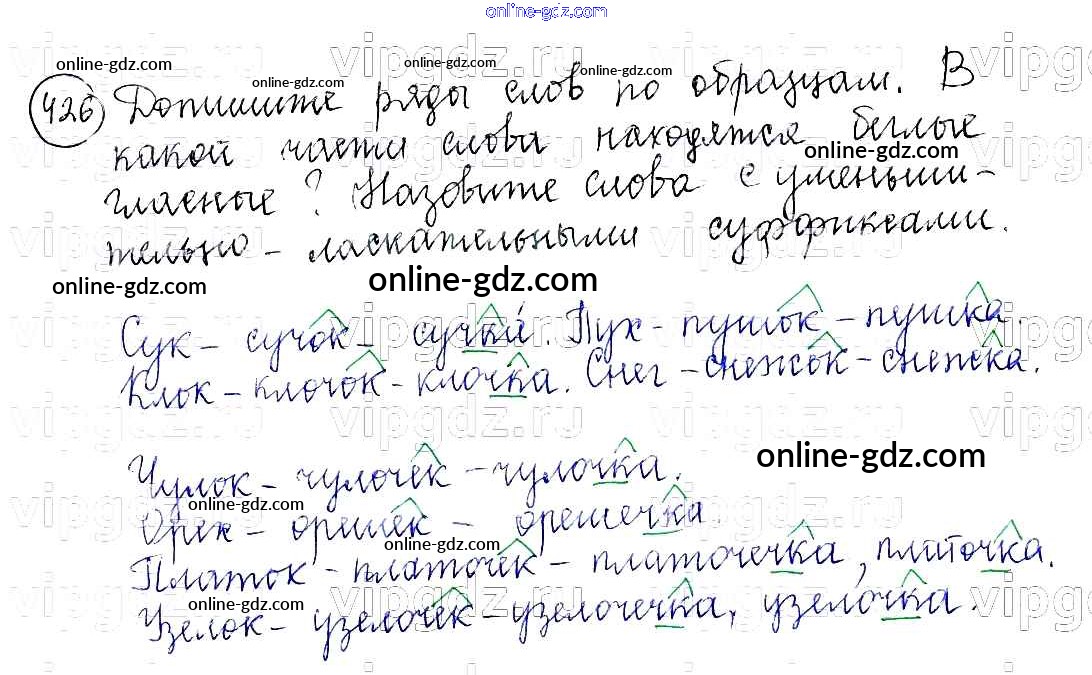 online-gdz.com
vipgdz.ru vipgdz.ru vipgdz.ru
online-gdz.com online-gdz.com online-gdz.com
426 Допишите ряды слов по образцам. В
какой части слова находятся беглые
online-gdz.com
гласные? Назовите слова с уменьши-
тельно-ласкательными суффиксами.
online-gdz.com online-gdz.com
Сук - сучок - сучки́. Пух - пушок - пушка.
Клок - клочок - клочка. Снег - снежок - снежка.
vipgdz.ru vipgdz.ru vipgdz.ru
online-gdz.com
Чулок - чулочек - чулочка.
online-gdz.com
Орех - орешек - орешечка.
online-gdz.com
Платок - платочек - платочечка, платочка.
online-gdz.com online-gdz.com
Узелок - узелочек - узелочечка, узелочка.